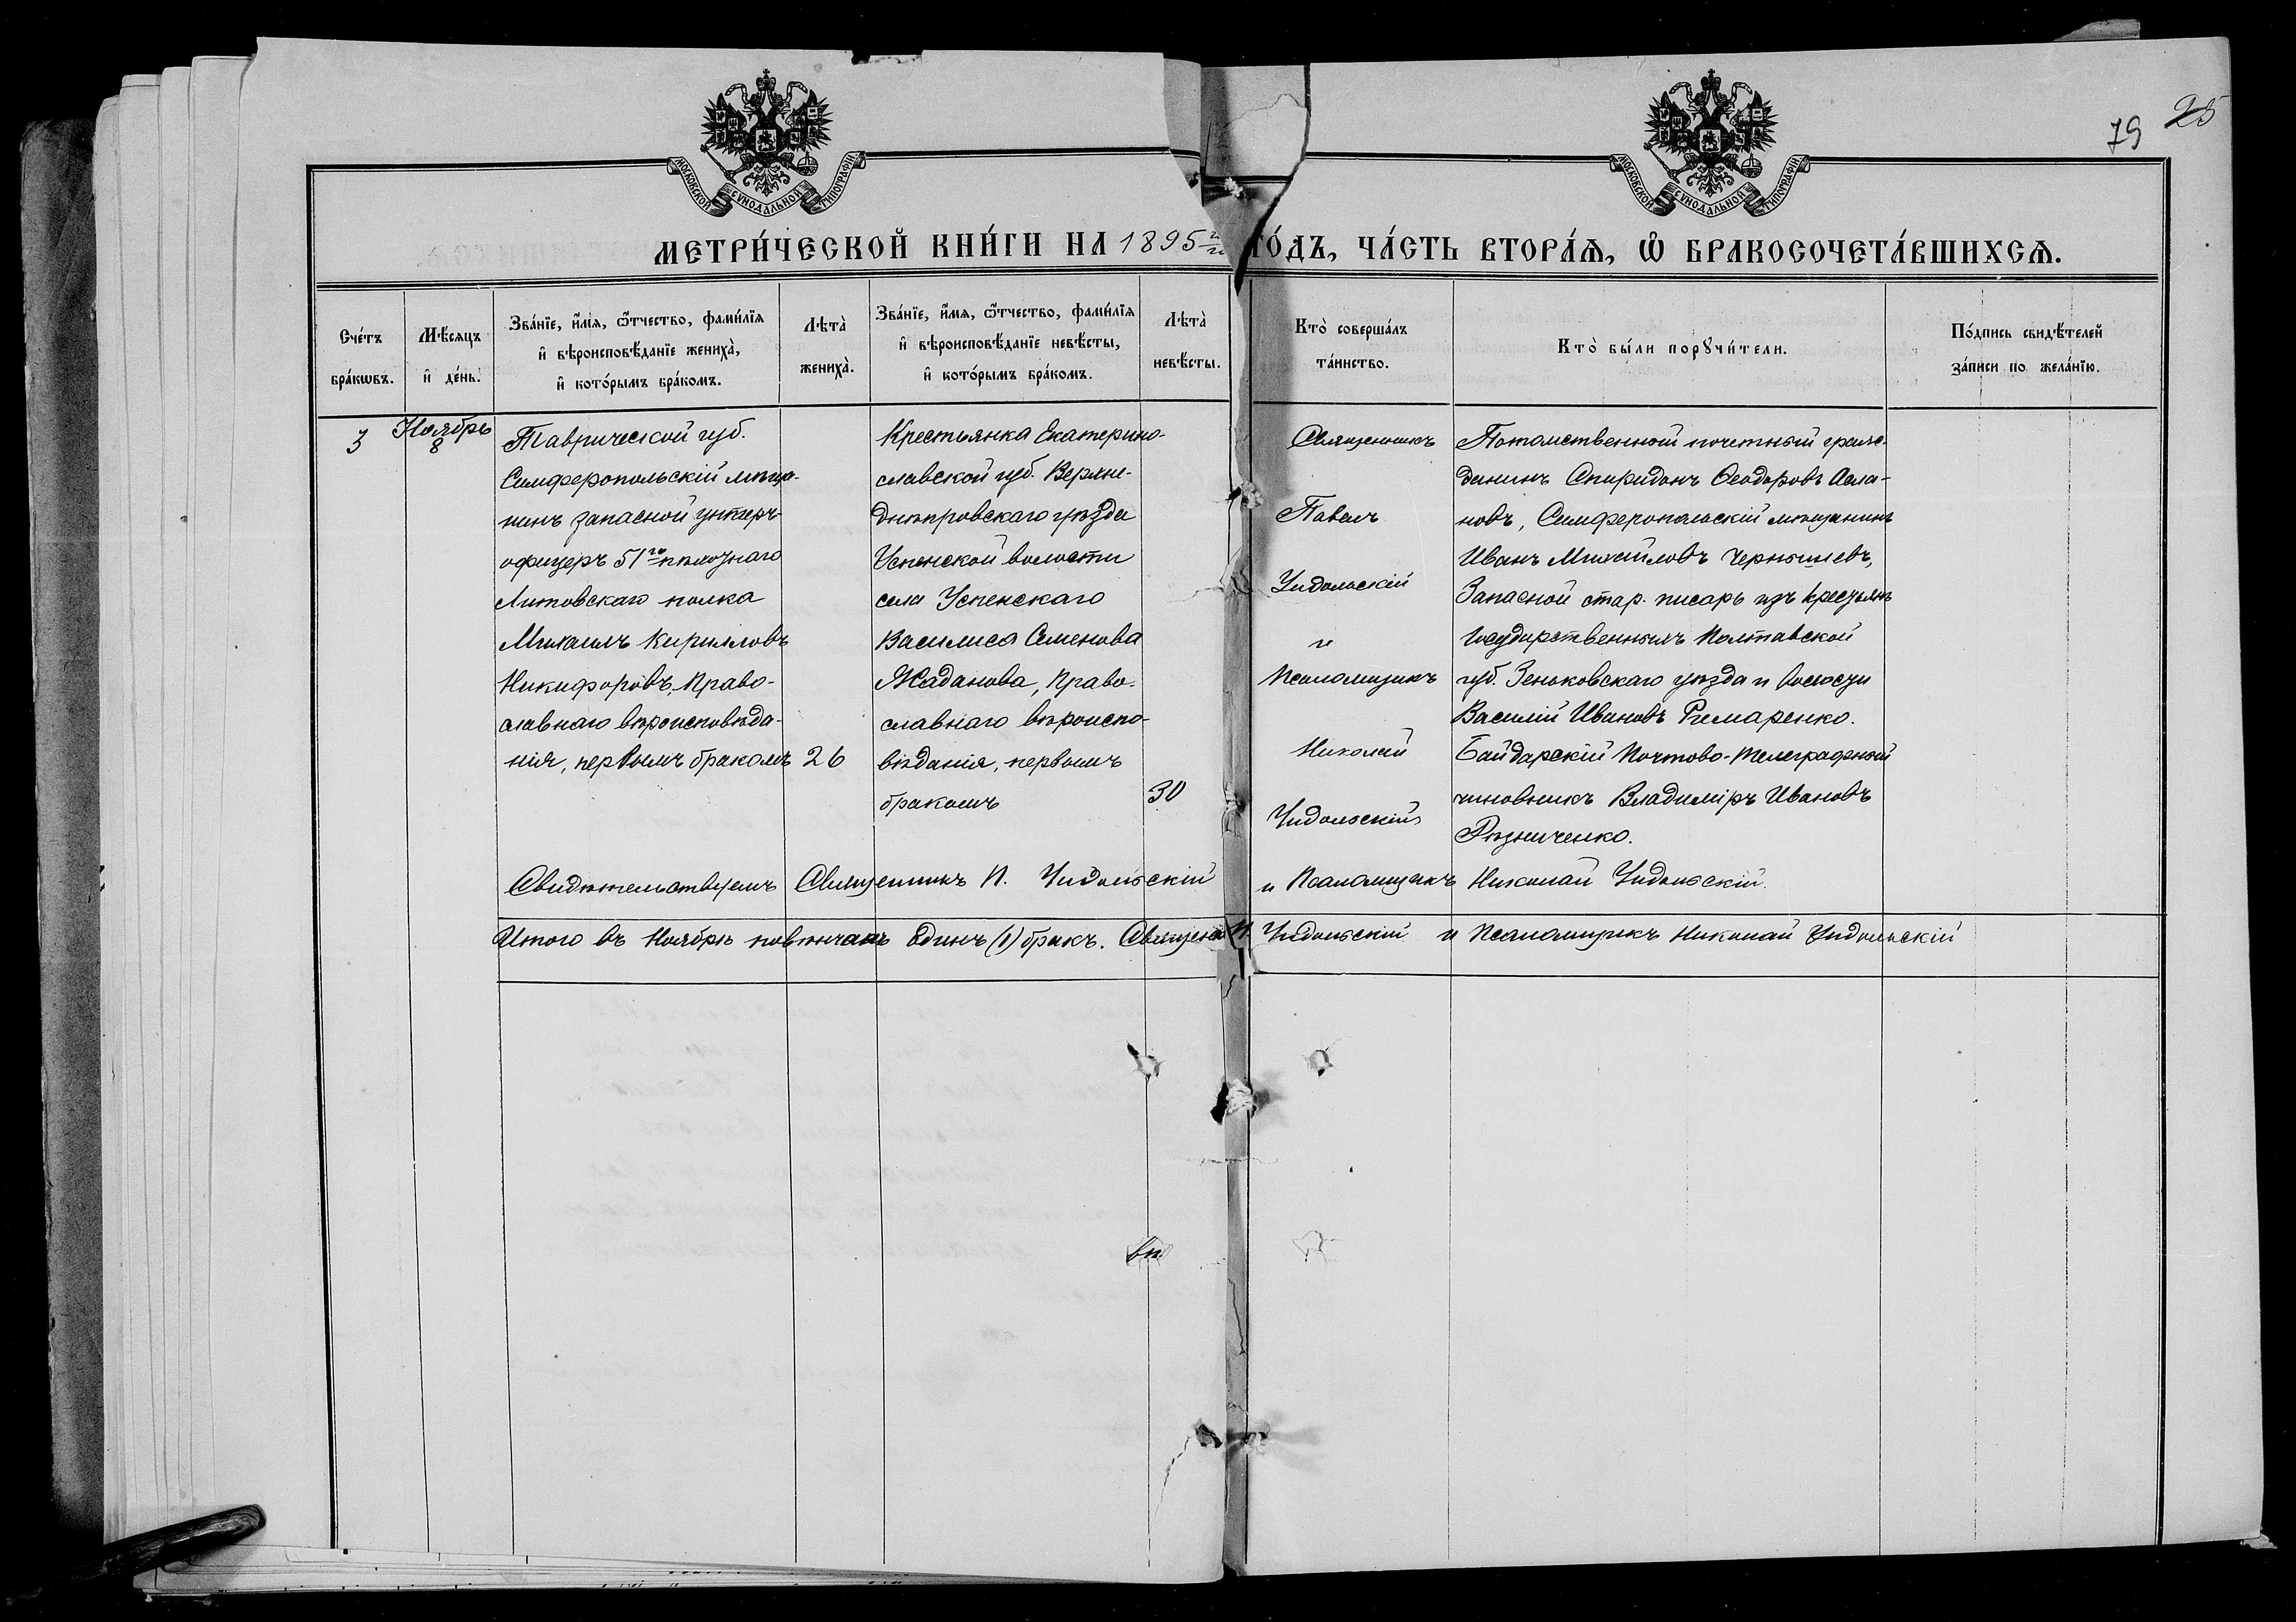 79 25
МОСКОВСКОЙ СѴНОДАЛЬНОЙ ТИПОГРАФІИ.
МОСКОВСКОЙ СѴНОДАЛЬНОЙ ТИПОГРАФІИ.
МЕТРИ́ЧЕСКОЙ КНИ́ГИ НА 1895 ГО́ДЪ, ЧА́СТЬ ВТОРА́Ѧ, Ѡ҆ БРАКОСОЧЕТА́ВШИХСѦ.
Сче́тъ
бра́кѡвъ.
Мѣ́сяцъ
и҆ де́нь.
Зва́нїе, и҆́мѧ, ѻ҆́тчество, фами́лїѧ
и҆ вѣроисповѣ́данїе жениха̀,
и҆ кото́рымъ бра́комъ.
Лѣта̀
жениха̀.
Зва́нїе, и҆́мѧ, ѻ҆́тчество, фами́лїѧ
и҆ вѣроисповѣ́данїе невѣ́сты,
и҆ кото́рымъ бра́комъ.
Лѣта̀
невѣ́сты.
Кто̀ соверша́лъ
та́инство.
Кто̀ бы́ли порꙋчи́тели.
По́дпись свидѣ́телей
за́писи по жела́нїю.
3
Ноябрь
8
Таврической губ.
Симферопольскій мѣща-
нинъ запасной унтеръ-
офицеръ 51го пѣхотнаго
Литовскаго полка
Михаилъ Кирилловъ
Никифоровъ, Право-
славнаго вѣроисповѣда-
нія, первымъ бракомъ 26
Крестьянка Екатерино-
славской губ. Верхне-
днѣпровскаго уѣзда
Успенской волости
села Успенскаго
Василиса Семенова
Жаданова, Право-
славнаго вѣроиспо-
вѣданія, первымъ
бракомъ 30
Священникъ
Павелъ
Чидольскій
и
Псаломщикъ
Николай
Чидольскій
Потомственный почетный граж-
данинъ Спиридонъ Ѳеодоровъ Асла-
новъ, Симферопольскій мѣщанинъ
Иванъ Михайловъ Чернышевъ,
Запасной стар. писарь изъ крестьянъ
Государственныхъ Полтавской
губ. Зеньковскаго уѣзда и волости
Василій Ивановъ Римаренко.
Байдарскій Почтово-Телеграфный
чиновникъ Владиміръ Ивановъ
Рѣзниченко.
Свидѣтельствуемъ Священникъ П. Чидольскій и Псаломщикъ Николай Чидольскій.
Итого въ Ноябрѣ повѣнчанъ Одинъ (1) бракъ. Священ. П. Чидольскій и Псаломщикъ Николай Чидольскій